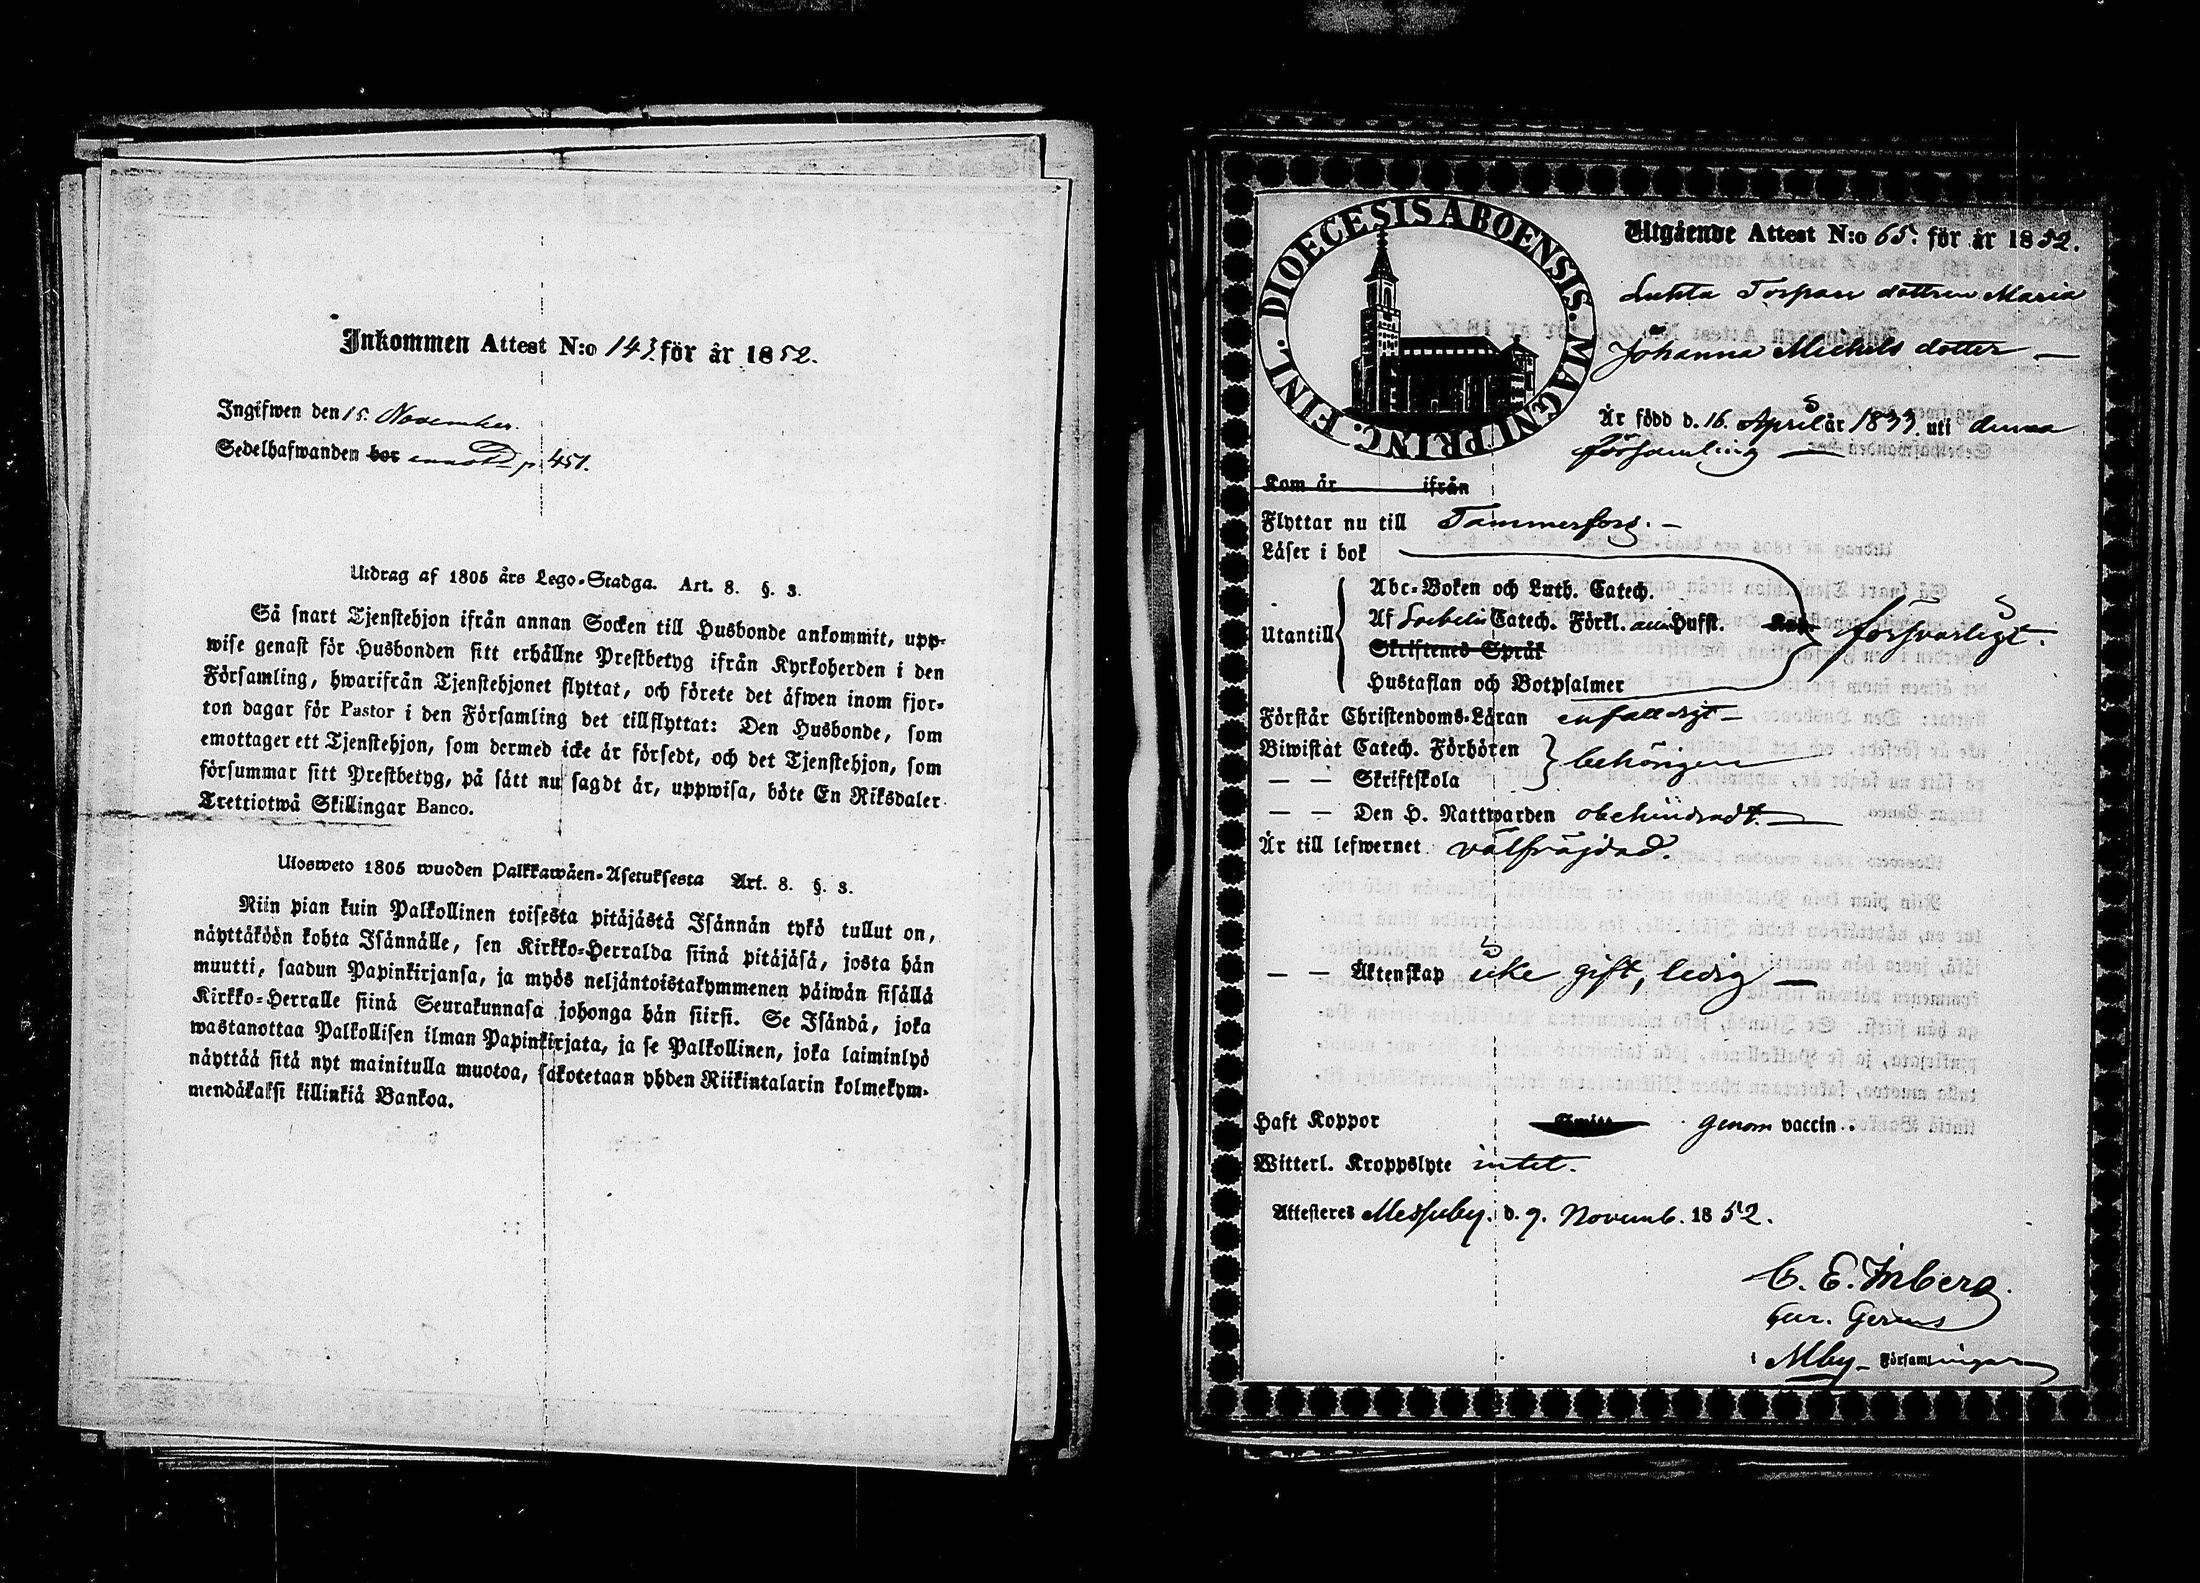 Inkommen Attest N:o 143. för år 1852.
Ingifwen den 15. November.
Sedelhafwanden bor p. 451.
Utdrag af 1805 års Lego-Stadga. Art. 8. §. 3.
Så snart Tjenstehjon ifrån annan Socken till Husbonde ankommit, upp-
wise genast för Husbonden sitt erhållne Prestbetyg ifrån Kyrkoherden i den
Församling, hwarifrån Tjenstehjonet flyttat, och förete det äfwen inom fjor-
ton dagar för Pastor i den Församling det tillflyttat: Den Husbonde, som
emottager ett Tjenstehjon, som dermed icke är försedt, och det Tjenstehjon, som
försummar sitt Prestbetyg, på sätt nu sagdt är, uppwisa, böte En Riksdaler
Trettiotwå Skillingar Banco.
Ulosweto 1805 wuoden Palkkawäen-Asetuksesta Art. 8. §. 3.
Niin pian kuin Palkollinen toisesta pitäjästä Isännän tykö tullut on,
näyttäköön kohta Isännälle, sen Kirkko-Herralda siinä pitäjäsä, josta hän
muutti, saadun Papinkirjansa, ja myös neljäntoistakymmenen päiwän sisällä
Kirkko-Herralle siinä Seurakunnasa johonga hän siirsi. Se Isändä, joka
wastanottaa Palkollisen ilman Papinkirjata, ja se Palkollinen, joka laiminlyö
näyttää sitä nyt mainitulla muotoa, sakotetaan yhden Riikintalarin kolmekym-
mendäkaksi killinkiä Bankoa.
DIOECESIS ABOENSIS. MAGNI PRINC. FINL.
Utgående Attest N:o 65. för år 1852.
Torpare dottren Maria
Johanna Michels dotter —
Är född d. 16. April år 1833. uti denna
församling —
Kom år ifrån
Flyttar nu till Tammerfors. —
Läser i bok
Abc-Boken och Luth. Catech.
Utantill Af Svebelii Catech. Förkl. Hufst. försvarligt.
Skriftenes Språk
Hustaflan och Botpsalmer
Förstår Christendoms-Läran enfaldigt —
Biwistat Catech. Förhören behörigen
— — Skriftskola
— — Den H. Nattwarden obehindradt. —
Är till lefwernet välfräjdad.
— — Äktenskap icke gift, ledig —
Haft Koppor genom vaccin.
Witterl. Kroppslyte intet.
Attesteres Messuby. d. 9. Novemb. 1852.
C. E. Inberg.
i Mby — Församlingar